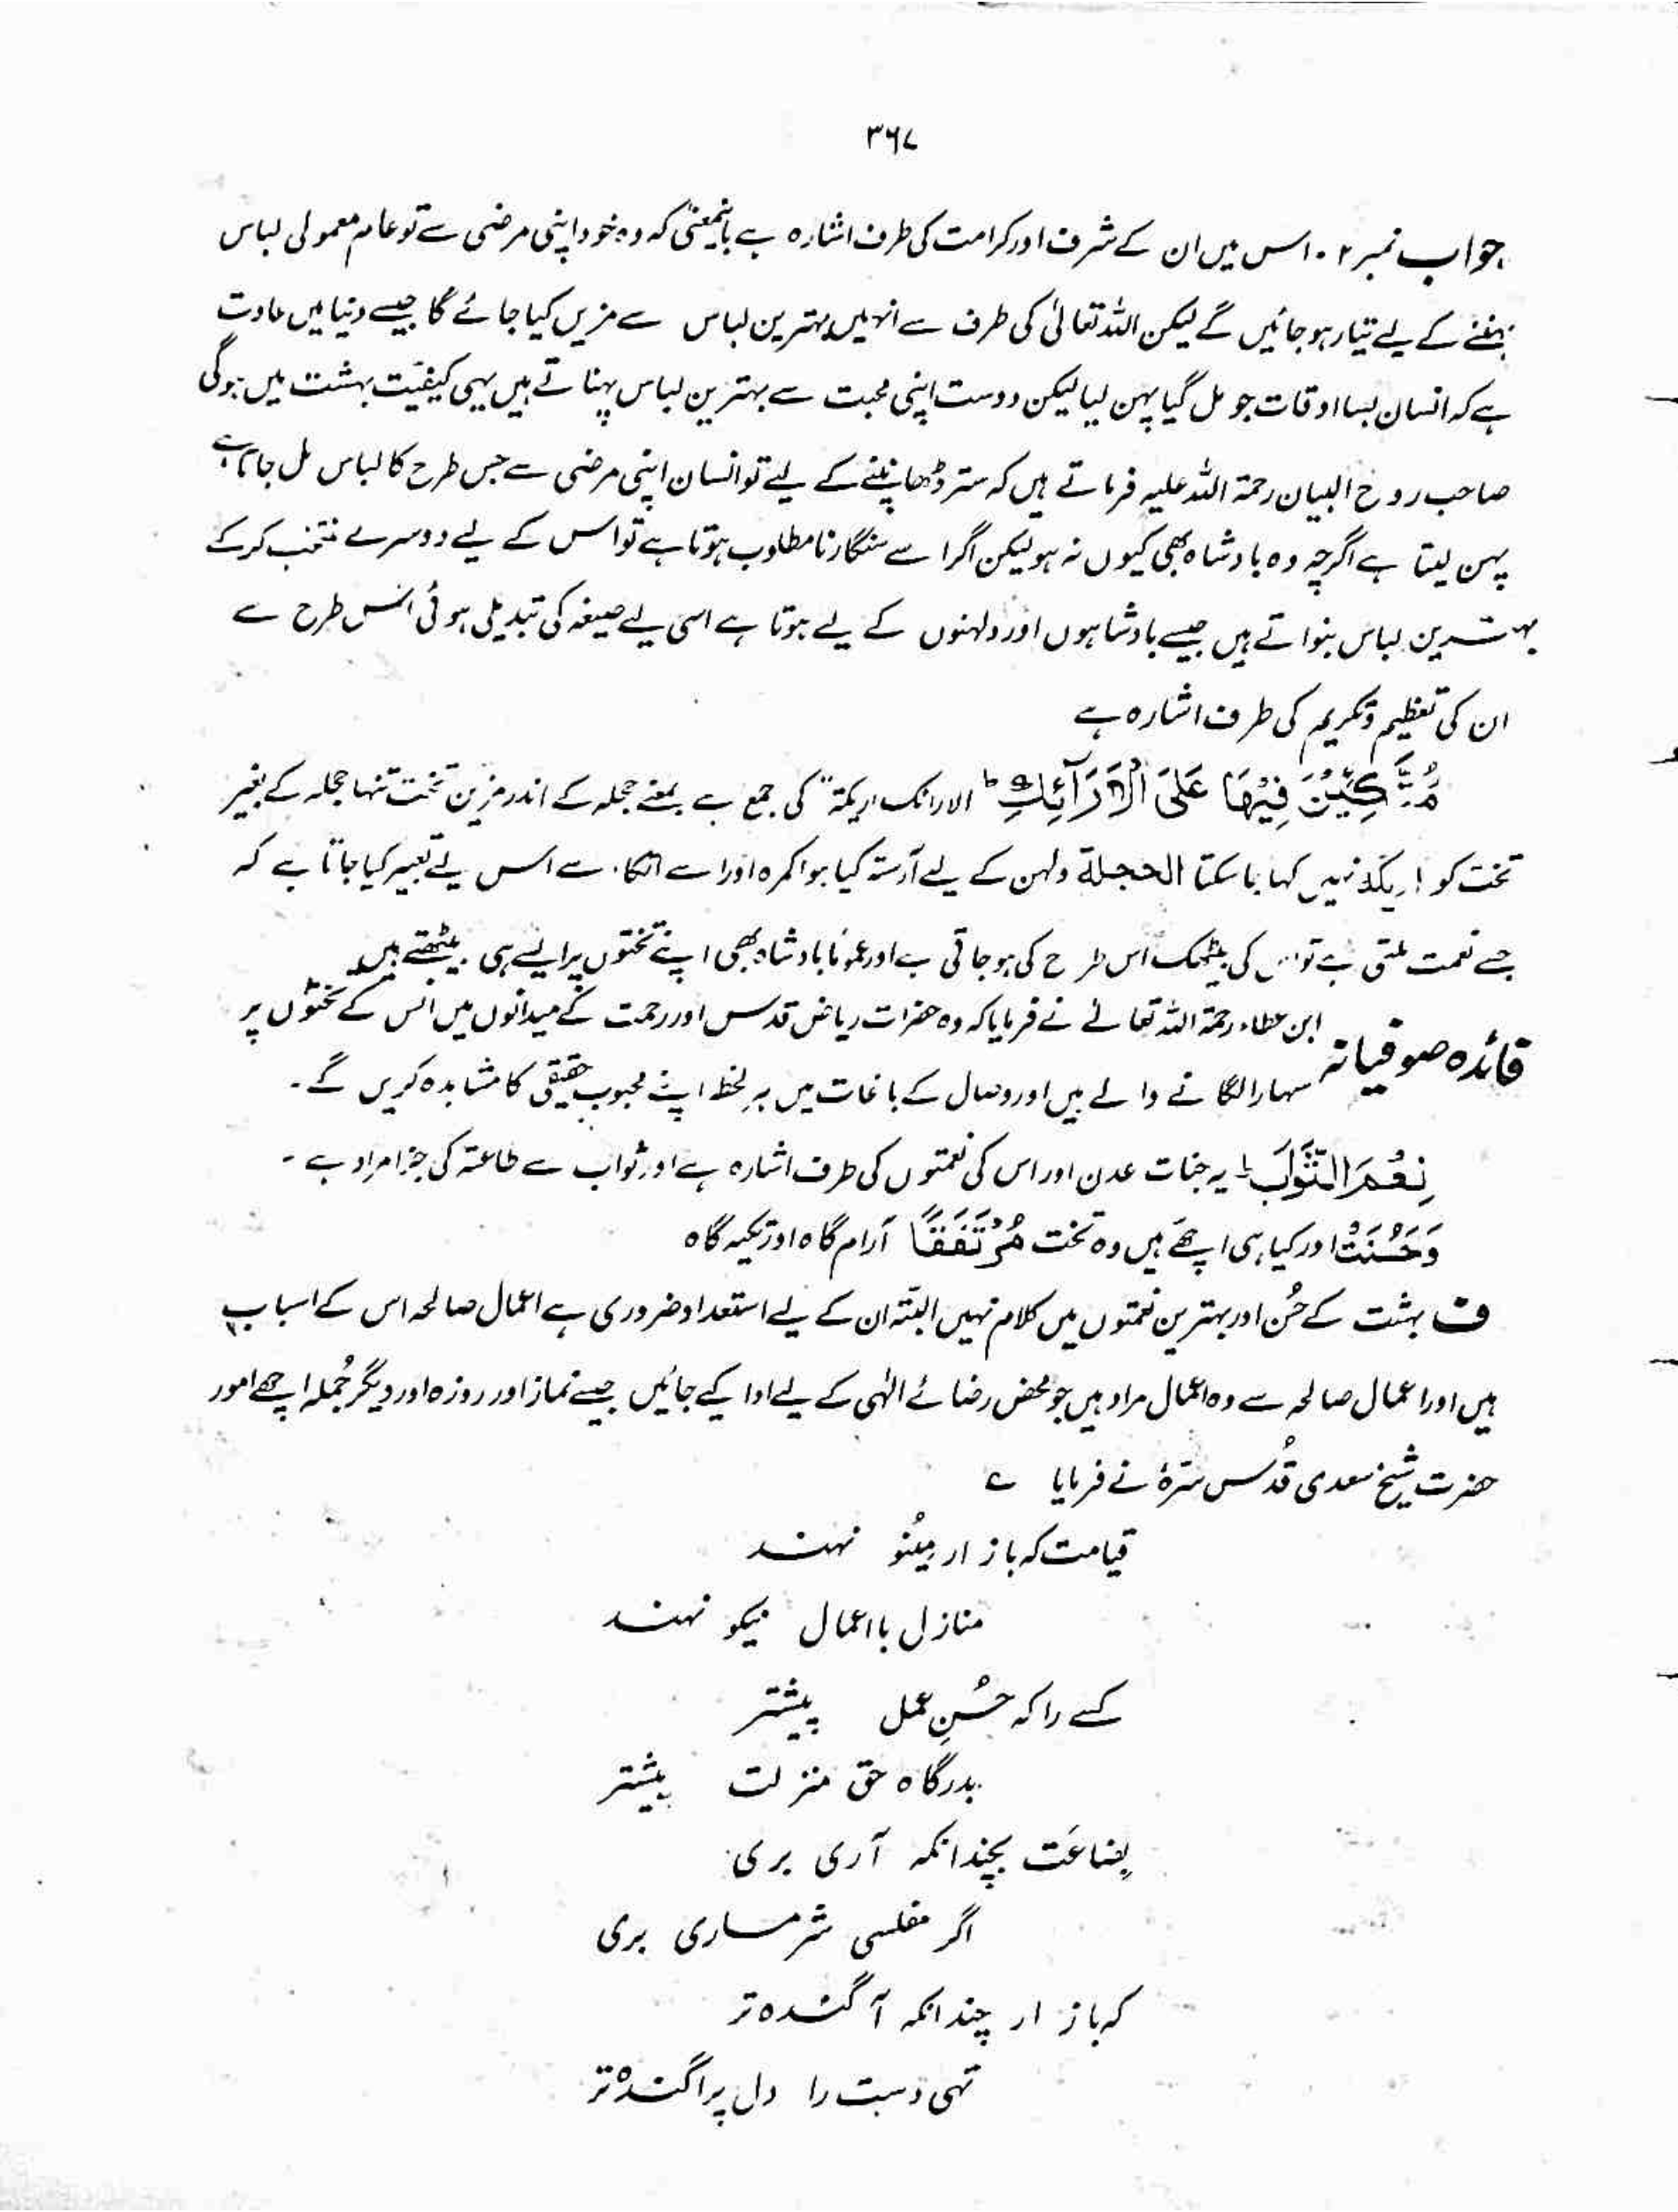 ۳۶۷
جواب نمبر ۲ ۔ اس میں ان کے شرف اور کرامت کی طرف اشارہ ہے باینمعنیٰ کہ وہ خود اپنی مرضی سے تو عام معمولی لباس
پہننے کے لیے تیار ہو جائیں گے لیکن اللہ تعالیٰ کی طرف سے انہیں بہترین لباس سے مزیں کیا جائے گا جیسے دنیا میں عادت
ہے کہ انسان بسا اوقات جو مل گیا پہن لیا لیکن دوست اپنی محبت سے بہترین لباس پہناتے ہیں یہی کیفیت بہشت میں ہوگی
صاحب روح البیان رحمۃ اللہ علیہ فرماتے ہیں کہ ستر ڈھانپنے کے لیے تو انسان اپنی مرضی سے جس طرح کا لباس مل جاتا ہے
پہن لیتا ہے اگرچہ وہ بادشاہ بھی کیوں نہ ہو لیکن اگر اسے سنگارنا مطلوب ہوتا ہے تو اس کے لیے دوسرے منتخب کرکے
بہترین لباس بنواتے ہیں جیسے بادشاہوں اور دلہنوں کے لیے ہوتا ہے اسی لیے صیغہ کی تبدیلی ہوئی اس طرح سے
ان کی تعظیم و تکریم کی طرف اشارہ ہے
مُتَّكِئِيْنَ فِيْهَا عَلَى الْاَرَآئِكِ ؕ الارائک اریکۃ" کی جمع ہے بمعنے حجلہ کے اندر مزین تخت تنہا حجلہ کے بغیر
تخت کو اریکہ نہیں کہا جا سکتا الحجلۃ دلہن کے لیے آرستہ کیا ہوا کمرہ اور اسے اتکاء سے اس لیے تعبیر کیا جاتا ہے کہ
جسے نعمت ملتی ہے تو اس کی بیٹھک اس طرح کی ہو جاتی ہے اور عموًما بادشاہ بھی اپنے تختوں پر ایسے ہی بیٹھتے ہیں
فائدہ صوفیانہ ابن عطاء رحمۃ اللہ تعالےٰ نے فرمایا کہ وہ حضرات ریاض قدس اور رحمت کے میدانوں میں انس کے تختوں پر
سہارا لگانے والے ہیں اور وصال کے باغات میں ہر لحظہ اپنے محبوب حقیقی کا مشاہدہ کریں گے ۔
نِعْمَ الثَّوَابُ ؕ یہ جنات عدن اور اس کی نعمتوں کی طرف اشارہ ہے اور ثواب سے طاعتہ کی جزا مراد ہے ۔
وَحَسُنَتْ اور کیا ہی اچھے ہیں وہ تخت مُرْتَفَقًا آرام گاہ اور تکیہ گاہ
ف بہشت کے حُسن اور بہترین نعمتوں میں کلام نہیں البتّہ ان کے لیے استعداد ضروری ہے اعمال صالحہ اس کے اسباب
ہیں اور اعمال صالحہ سے وہ اعمال مراد ہیں جو محض رضائے الٰہی کے لیے ادا کیے جائیں جیسے نماز اور روزہ اور دیگر جُملہ اچھے امور
حضرت شیخ سعدی قُدس سّرہٗ نے فرمایا ؎
قیامت کہ بازار مینُو نہند
منازل با اعمال نیکو نہند
کسے را کہ حسُنِ عمل پیشتر
بدرگاہ حق منزلت پیشتر
بِضاعَت بچندانکہ آری بری
اگر مفلسی شرمساری بری
کہ بازار چندانکہ آگندہ تر
تہی دست را دل پراگندہ تر